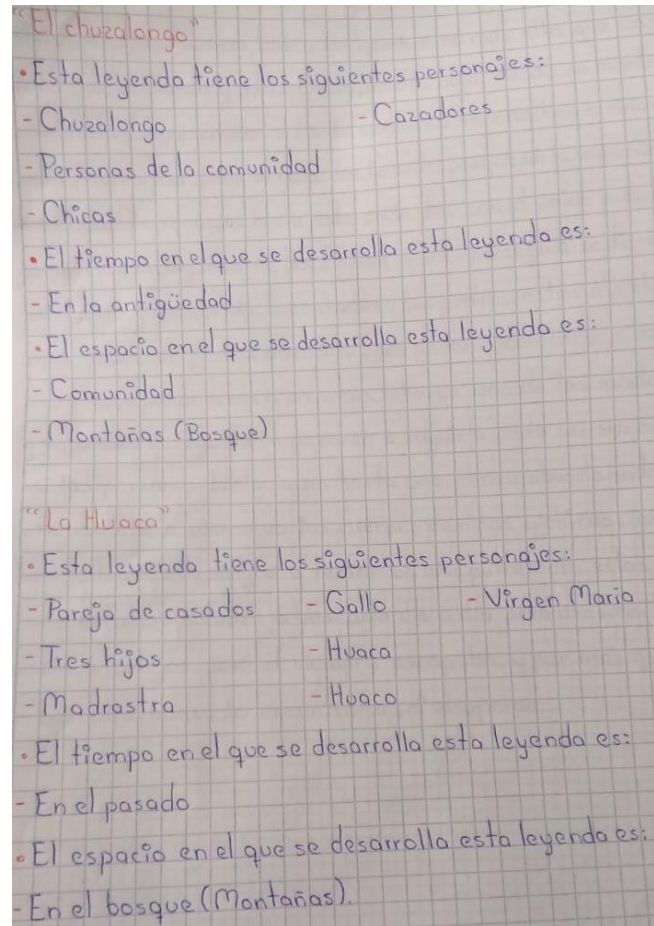 "El chuzalongo"
• Esta leyenda tiene los siguientes personajes:
- Chuzalongo - Cazadores
- Personas de la comunidad
- Chicas
• El tiempo en el que se desarrolla esta leyenda es:
- En la antigüedad
• El espacio en el que se desarrolla esta leyenda es:
- Comunidad
- Montañas (Bosque)
"La Huaca"
• Esta leyenda tiene los siguientes personajes:
- Pareja de casados - Gallo - Virgen Maria
- Tres hijos - Huaca
- Madrastra - Huaco
• El tiempo en el que se desarrolla esta leyenda es:
- En el pasado
• El espacio en el que se desarrolla esta leyenda es:
- En el bosque (Montañas).